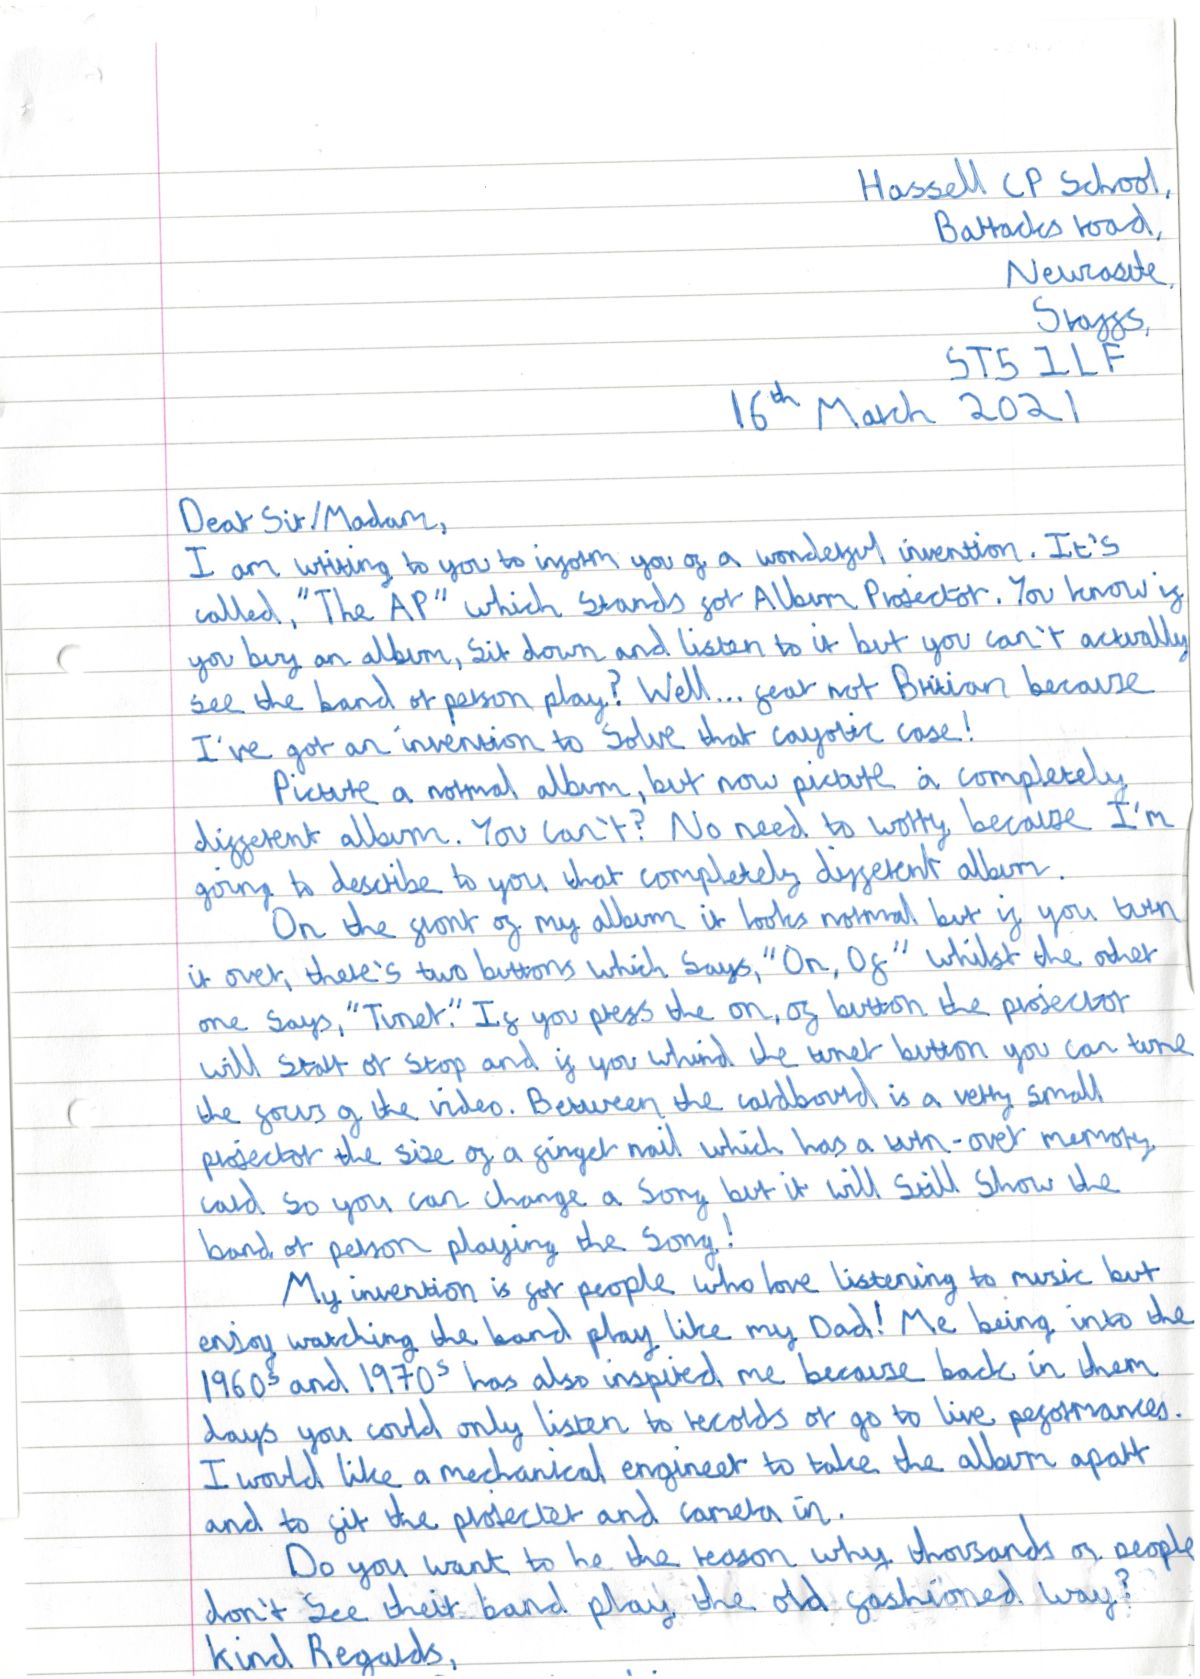 Hassell CP School,
Battacks road,
Newcaste,
Staffs,
ST5 1LF
16th March 2021
Dear Sir/Madam,
I am writing to you to inform you of a wonderful invention. It's
called, "The AP" which stands for Album Projector. You know if
you buy an album, sit down and listen to it but you can't actually
see the band or person play? Well... fear not Britian because
I've got an invention to solve that cayotic case!
Picture a normal album, but now picture a completely
different album. You can't? No need to worry because I'm
going to describe to you that completely different album.
On the front of my album it looks normal but if you turn
it over, there's two buttons which says, "On, Of" whilst the other
one says, "Tuner." If you press the on, of button the projector
will start or stop and if you whind the tuner button you can tune
the focus of the video. Between the cardbourd is a verry small
projector the size of a finger nail which has a turn-over memory
card so you can change a song but it will still show the
band or person playing the song!
My invention is for people who love listening to music but
enjoy watching the band play like my Dad! Me being into the
1960s and 1970s has also inspired me because back in them
days you could only listen to records or go to live peformances.
I would like a mechanical engineer to take the album apart
and to fit the projecter and camera in.
Do you want to be the reason why thousands of people
don't see their band play the old fashioned way?
Kind Regards,